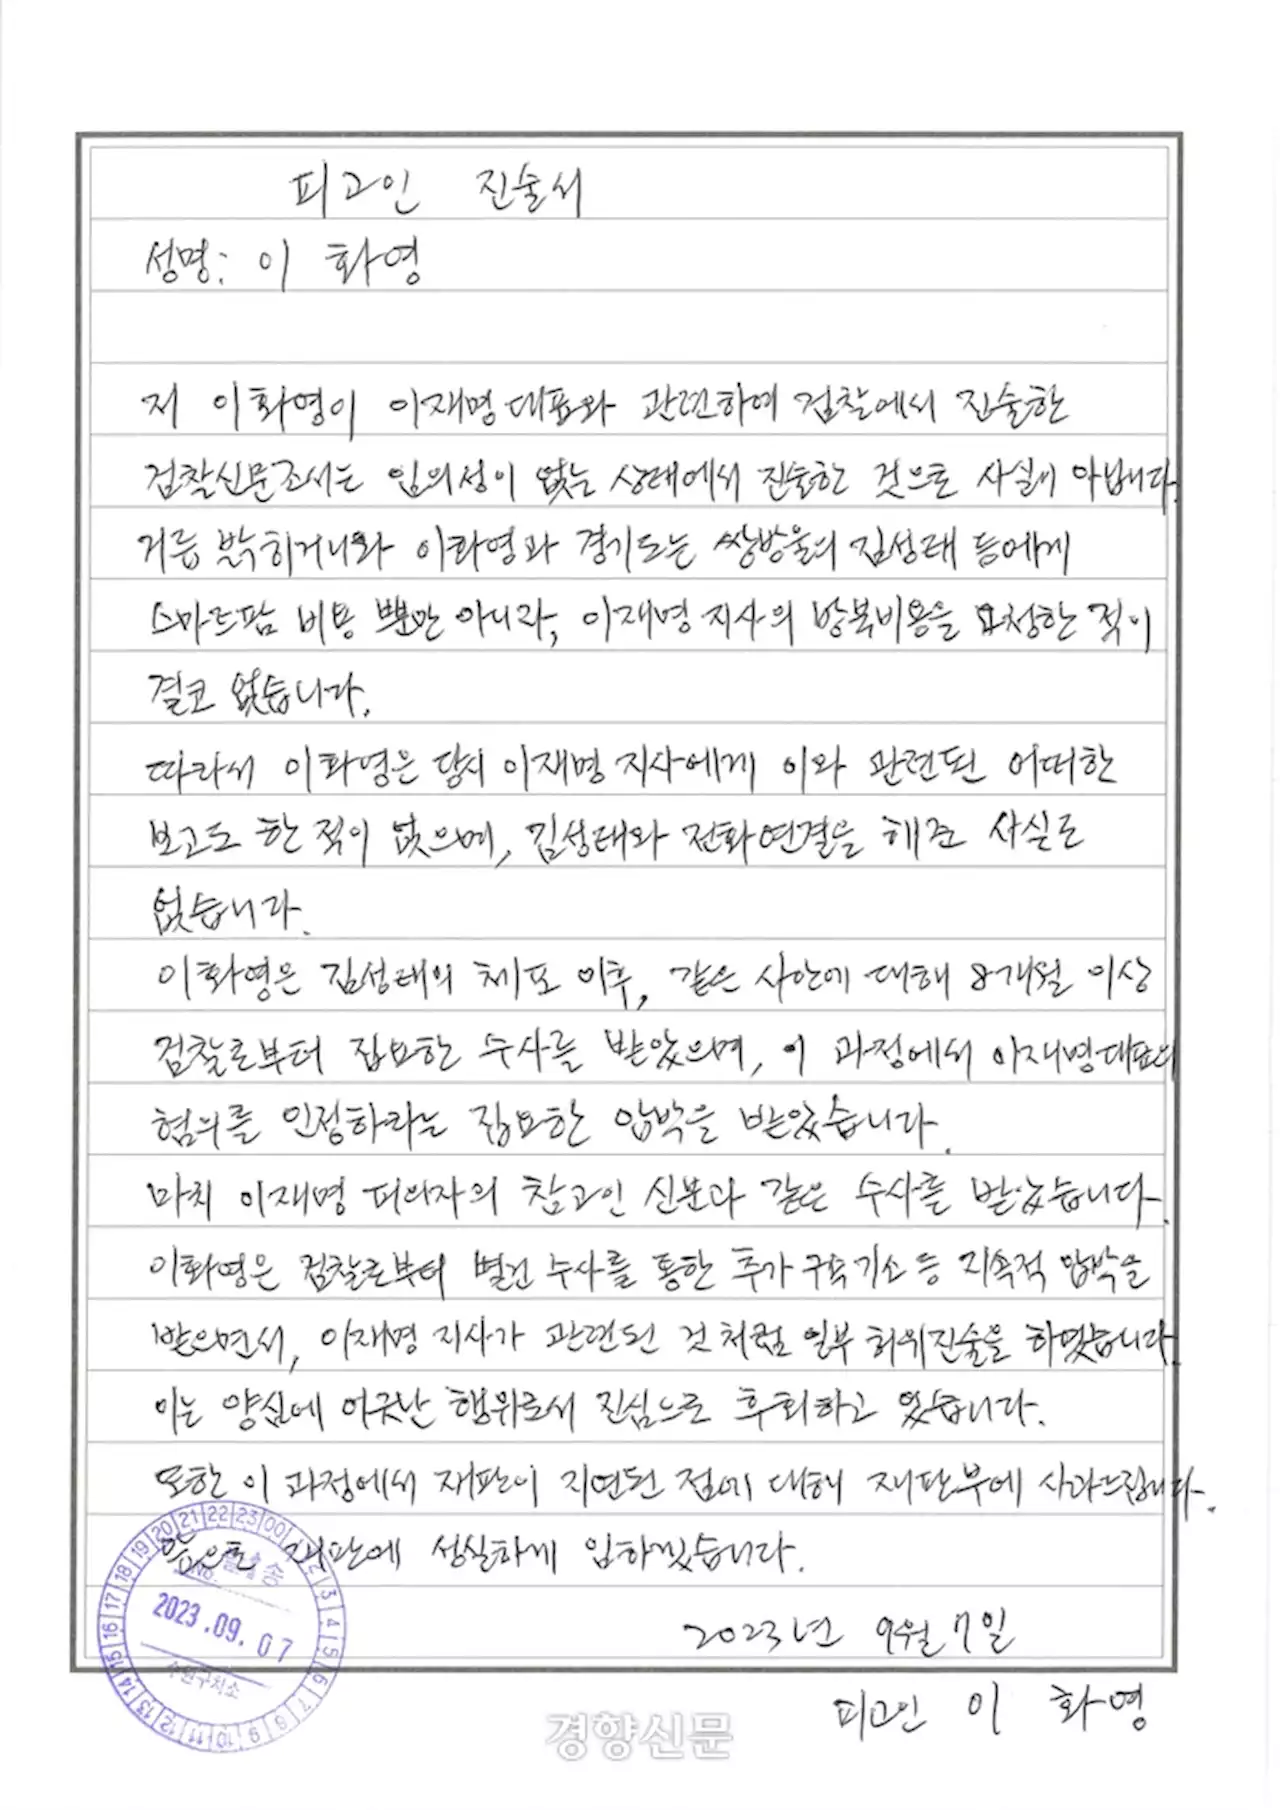 피고인 진술서
성명: 이 화영
저 이화영이 이재명대표와 관련하여 검찰에서 진술한
검찰신문조서는 임의성이 없는 상태에서 진술한 것으로 사실이 아닙니다.
거듭 밝히거니와 이화영과 경기도는 쌍방울의 김성태 등에게
스마트팜 비용 뿐만 아니라, 이재명 지사의 방북비용을 요청한 적이
결코 없습니다.
따라서 이화영은 당시 이재명 지사에게 이와 관련된 어떠한
보고도 한 적이 없으며, 김성태와 전화연결을 해준 사실도
없습니다.
이화영은 김성태의 체포 이후, 같은 사안에 대해 8개월 이상
검찰로부터 집요한 수사를 받았으며, 이 과정에서 이재명대표의
혐의를 인정하라는 집요한 압박을 받았습니다.
마치 이재명 피의자의 참고인 신분과 같은 수사를 받았습니다.
이화영은 검찰로부터 별건 수사를 통한 추가 구속기소 등 지속적 압박을
받으면서, 이재명 지사가 관련된 것처럼 일부 허위진술을 하였습니다.
이는 양심에 어긋난 행위로서 진심으로 후회하고 있습니다.
또한 이 과정에서 재판이 지연된 점에 대해 재판부에 사과드립니다.
앞으로 재판에 성실하게 임하겠습니다.
2023년 9월 7일
피고인 이 화영
16 17 18 19 20 21 22 23 00 2 3 4 5 6 7 8 9 10 11 12 13 14 15
No.
발송
2023.09.07
수원구치소
경향신문